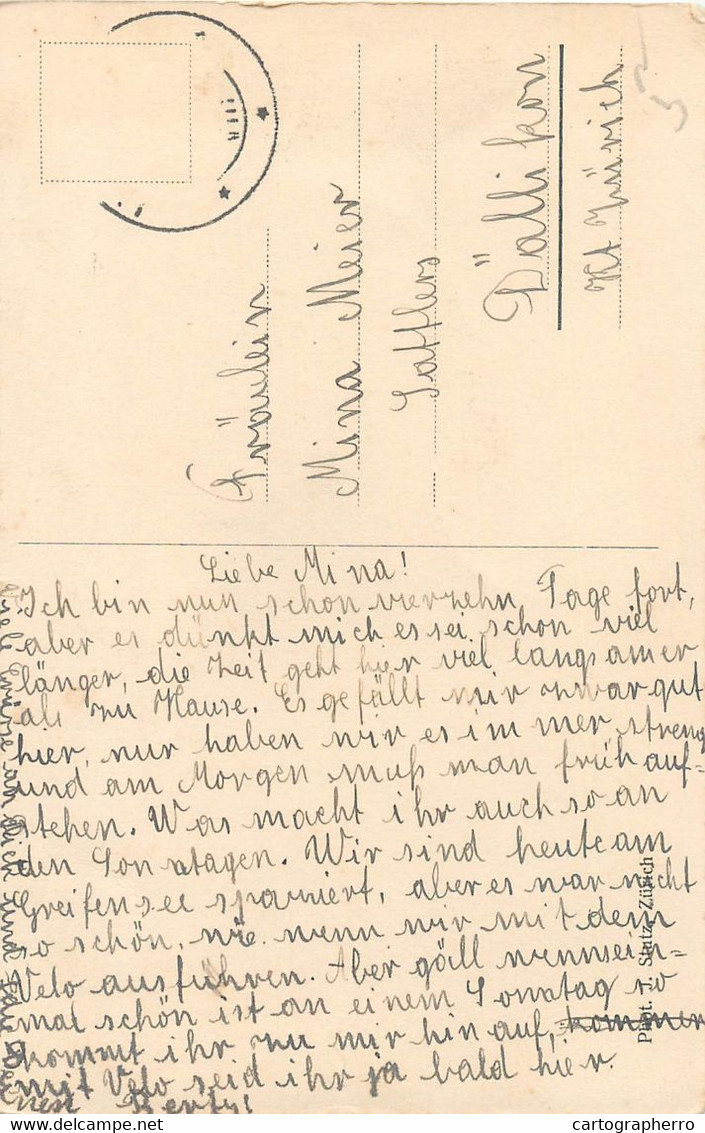 Fräulein
Mina Meier
Sattlers
Dällikon
Kt Zürich
Liebe Mina!
Ich bin nun schon vierzehn Tage fort,
aber es dünkt mich es sei schon viel
länger, die Zeit geht hier viel langsamer
als zu Hause. Es gefällt mir zwar gut
hier, nur haben wir es immer streng
und am Morgen muß man früh auf-
stehen. Was macht ihr auch so an
den Sonntagen. Wir sind heute am
Greifensee spaziert, aber es war nicht
so schön, wie wenn wir mit dem
Velo ausfuhren. Aber gäll wenn's ein-
mal schön ist an einem Sonntag so
kommt ihr zu mir hinauf, kommer
mit Velo seid ihr ja bald hier.
Viele Grüsse an dich und
Berty!
Phot. J. Stutz, Zürich
cartographerro